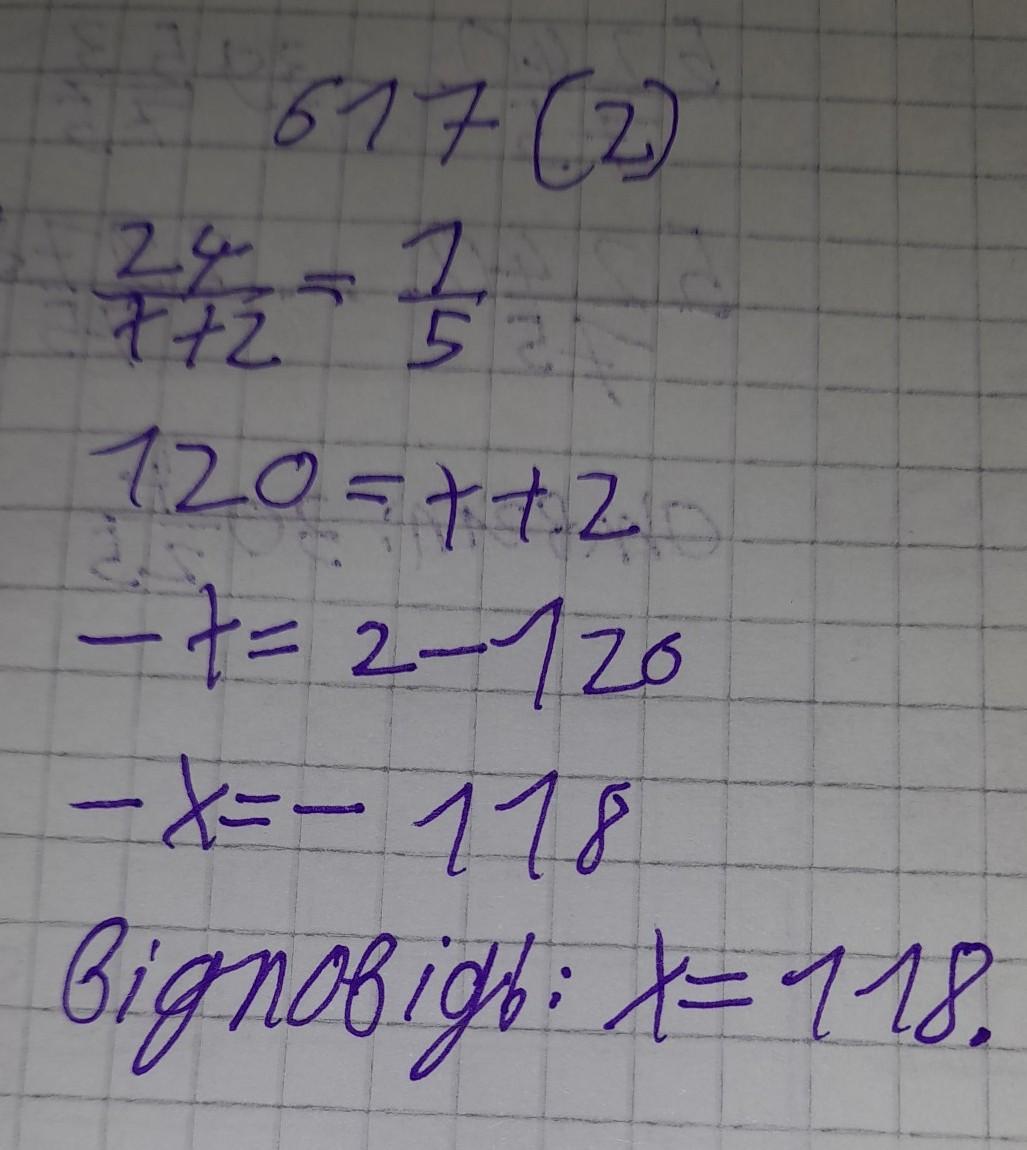 617 (2)
24/x+2 = 1/5
120 = x + 2
- x = 2 - 120
- x = - 118
Відповідь: x = 118.